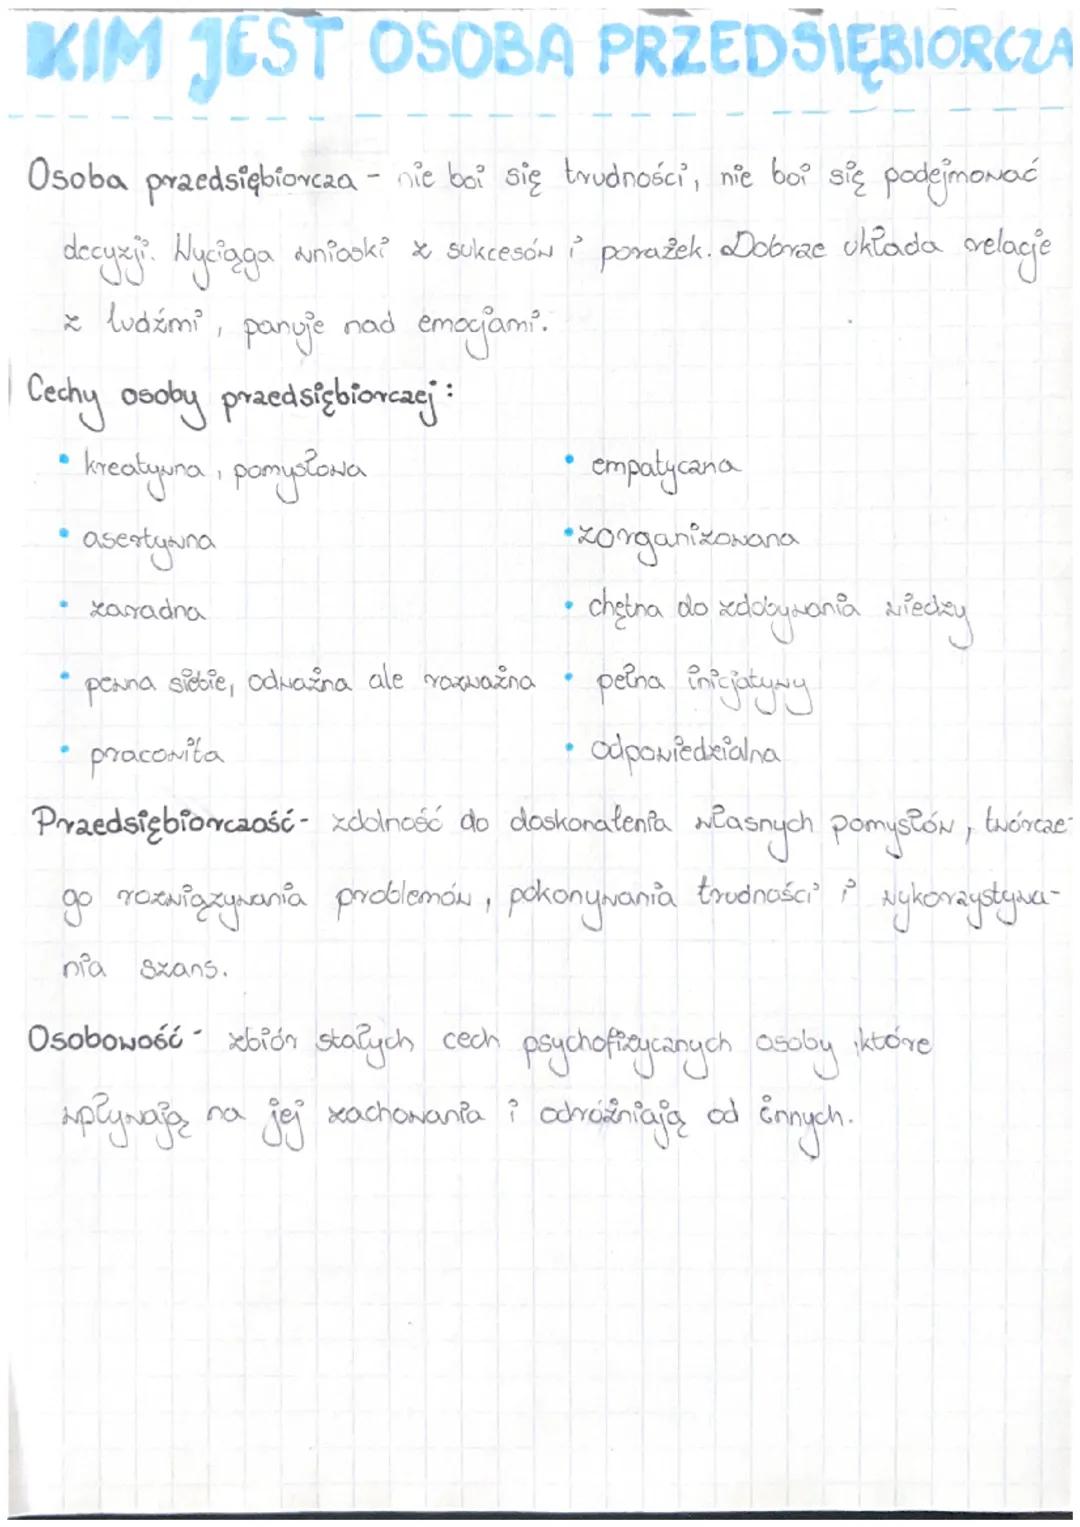 KIM JEST OSOBA PRZEDSIĘBIORCZA
Osoba przedsiębiorcza - nie boi się trudności, nie boi się podejmować
decyzji. Wyciąga wnioski z sukcesów i porażek. Dobrze układa relacje
z ludźmi, panuje nad emocjami.
Cechy osoby przedsiębiorczej:
• kreatywna, pomysłowa
• asertywna
• zaradna
• pewna siebie, odważna ale rozważna
• pracowita
• empatyczna
• zorganizowana
• chętna do zdobywania wiedzy
• pełna inicjatywy
• odpowiedzialna
Przedsiębiorczość - zdolność do doskonalenia własnych pomysłów, twórcze-
go rozwiązywania problemów, pokonywania trudności i wykorzystywa-
nia szans.
Osobowość - zbiór stałych cech psychofizycznych osoby, które
wpływają na jej zachowania i odróżniają od innych.